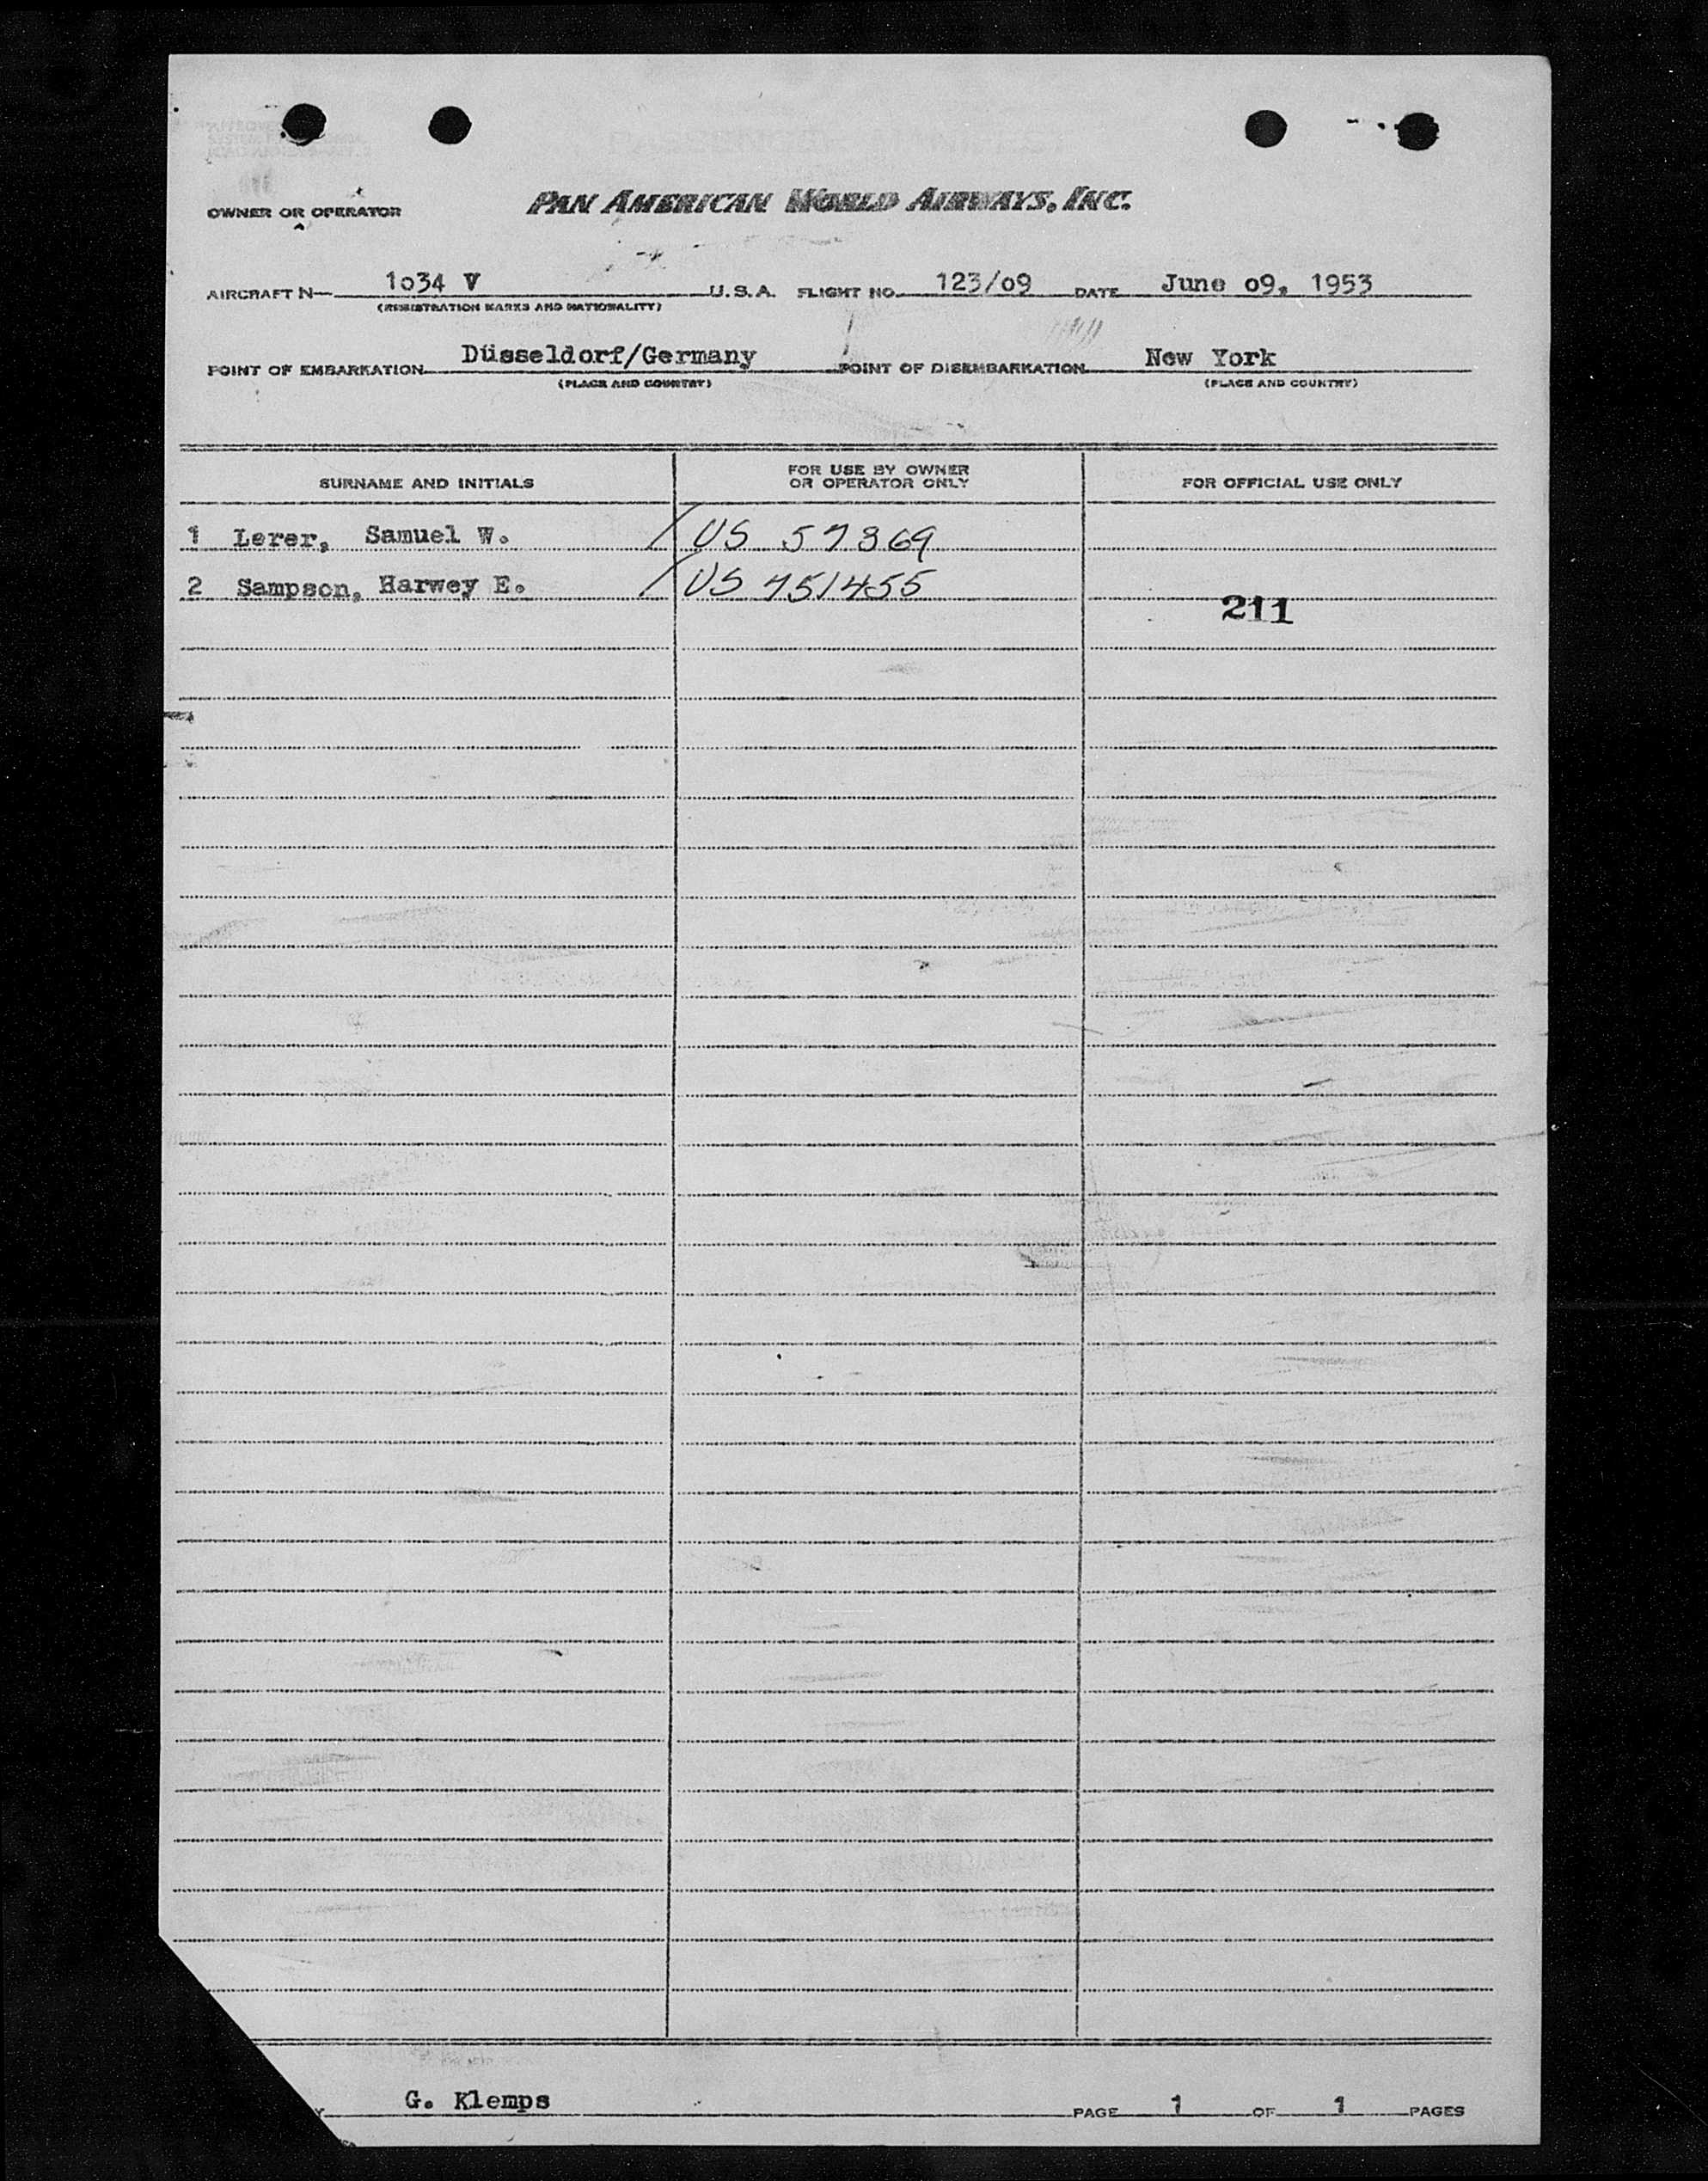 OWNER OR OPERATOR PAN AMERICAN WORLD AIRWAYS, INC.
AIRCRAFT N— 1o34 V U.S.A. FLIGHT NO. 123/o9 DATE June o9, 1953
(REGISTRATION MARKS AND NATIONALITY)
POINT OF EMBARKATION Düsseldorf/Germany POINT OF DISEMBARKATION New York
(PLACE AND COUNTRY) (PLACE AND COUNTRY)
SURNAME AND INITIALS FOR USE BY OWNER OR OPERATOR ONLY FOR OFFICIAL USE ONLY
1 Lerer, Samuel W. / US 57369
2 Sampson, Harwey E. / US 751455
211
G. Klemps PAGE 1 OF 1 PAGES